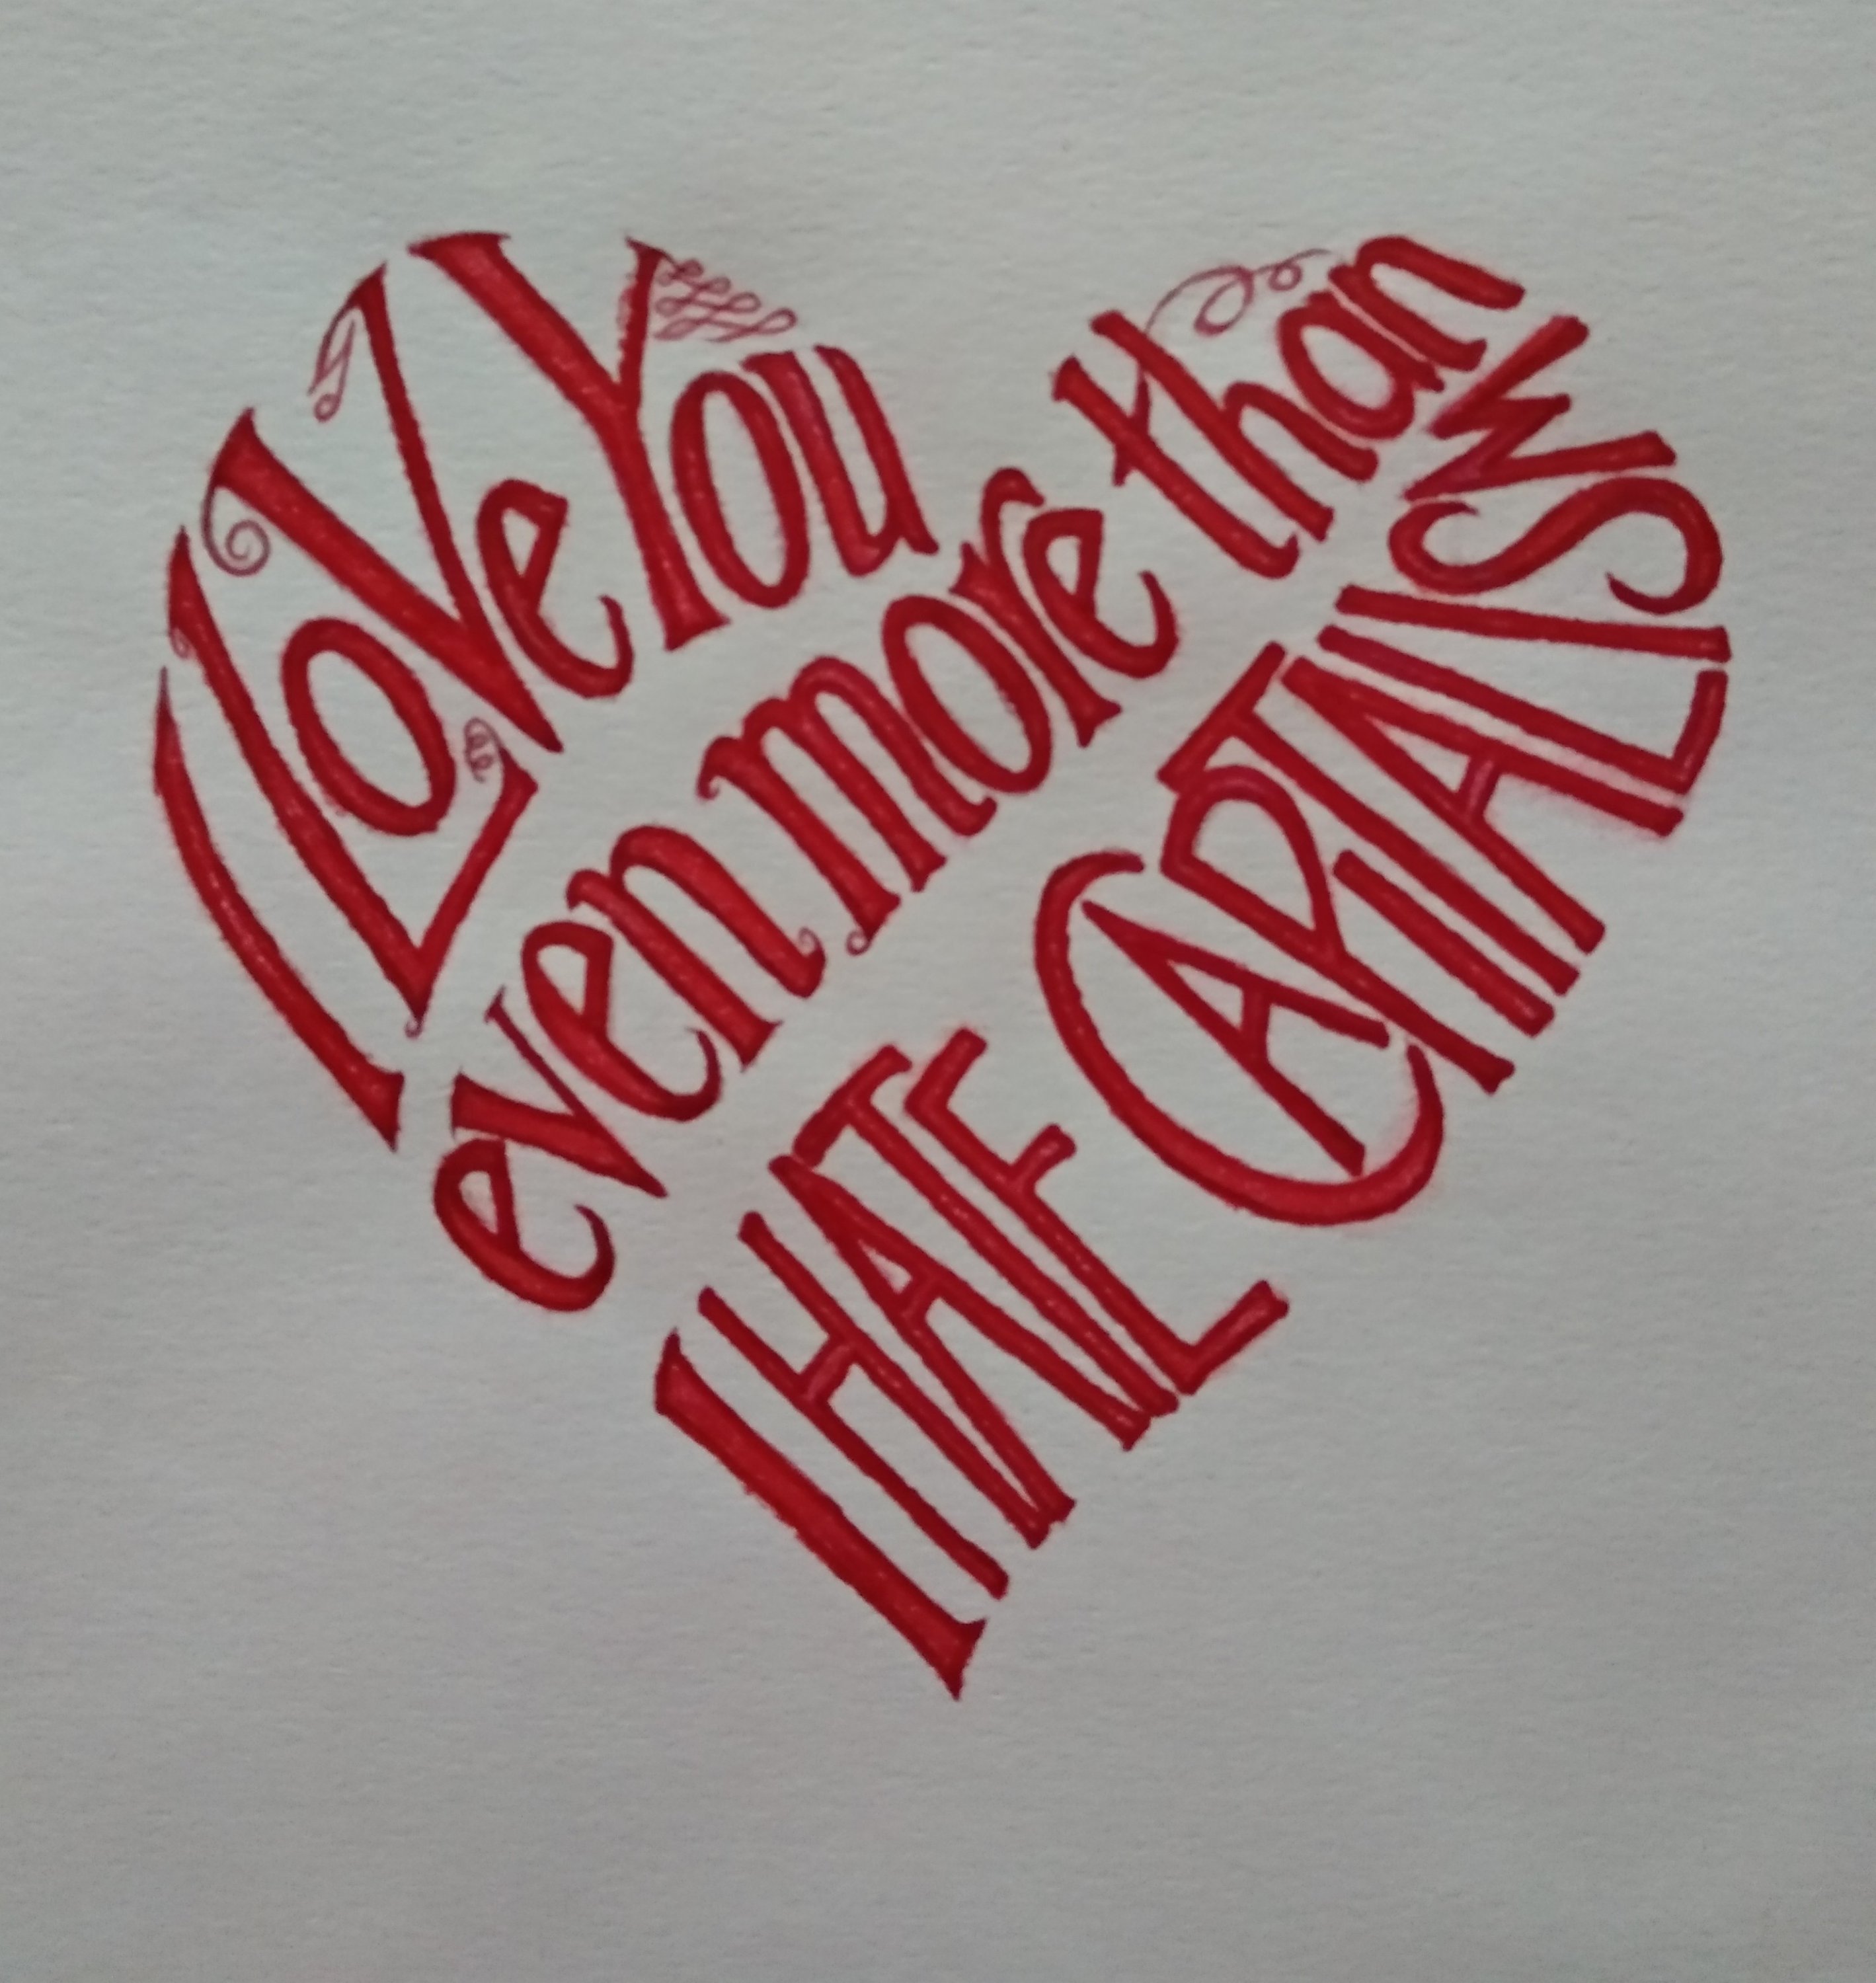 I Love You
even more than
I HATE CAPITALISM